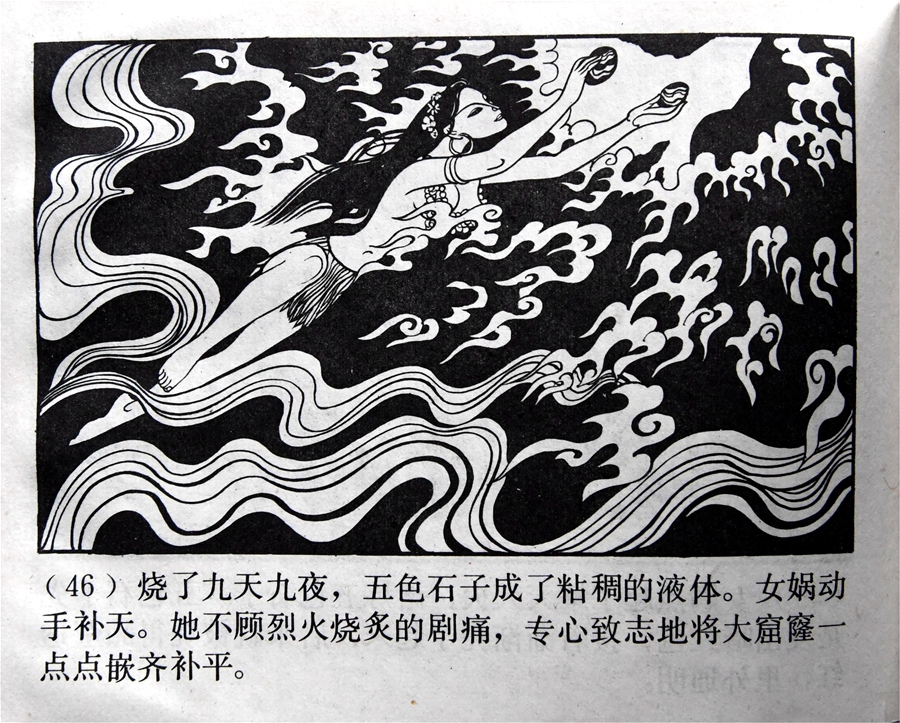 （46）烧了九天九夜，五色石子成了粘稠的液体。女娲动
手补天。她不顾烈火烧炙的剧痛，专心致志地将大窟窿一
点点嵌齐补平。